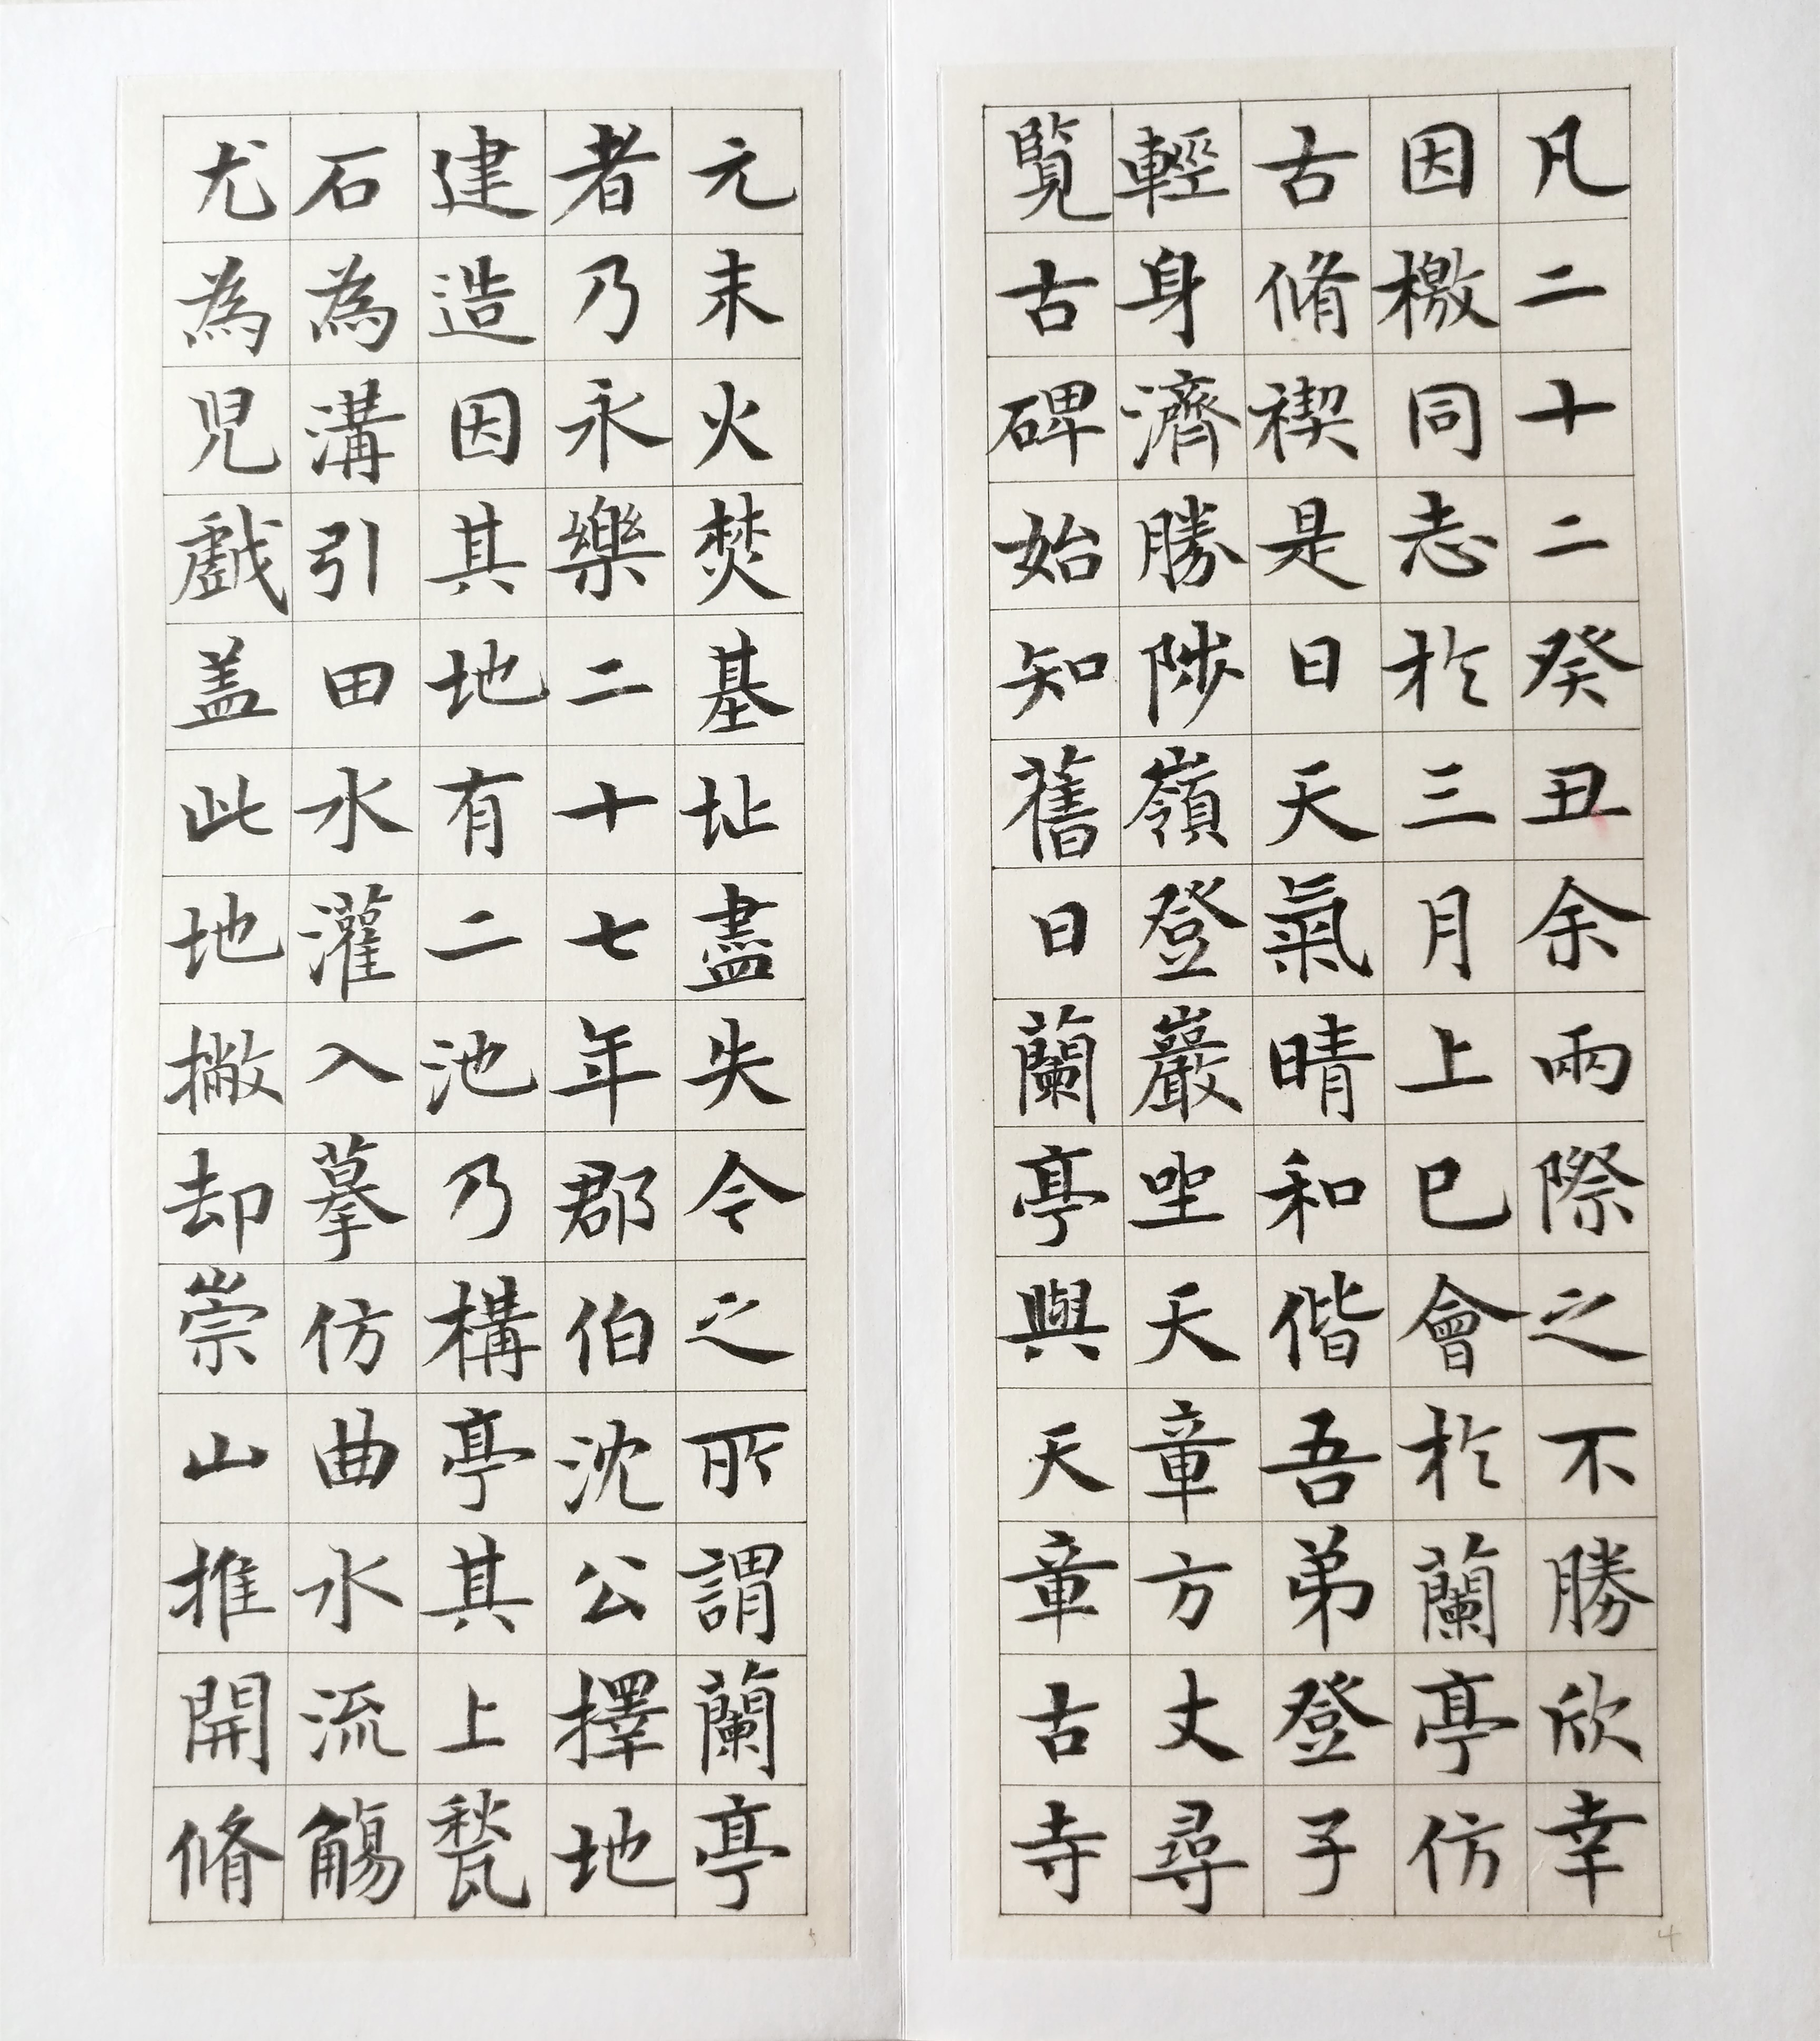 凡二十二癸丑余兩際之不勝欣幸
因檄同志於三月上巳會於蘭亭仿
古脩禊是日天氣晴和偕吾弟登子
輕身濟勝陟嶺登巖坐天章方丈尋
覧古碑始知舊日蘭亭與天章古寺
4
元末火焚基址盡失今之所謂蘭亭
者乃永樂二十七年郡伯沈公擇地
建造因其地有二池乃構亭其上甃
石為溝引田水灌入摹仿曲水流觴
尤為児戲盖此地撇却崇山推開脩
5